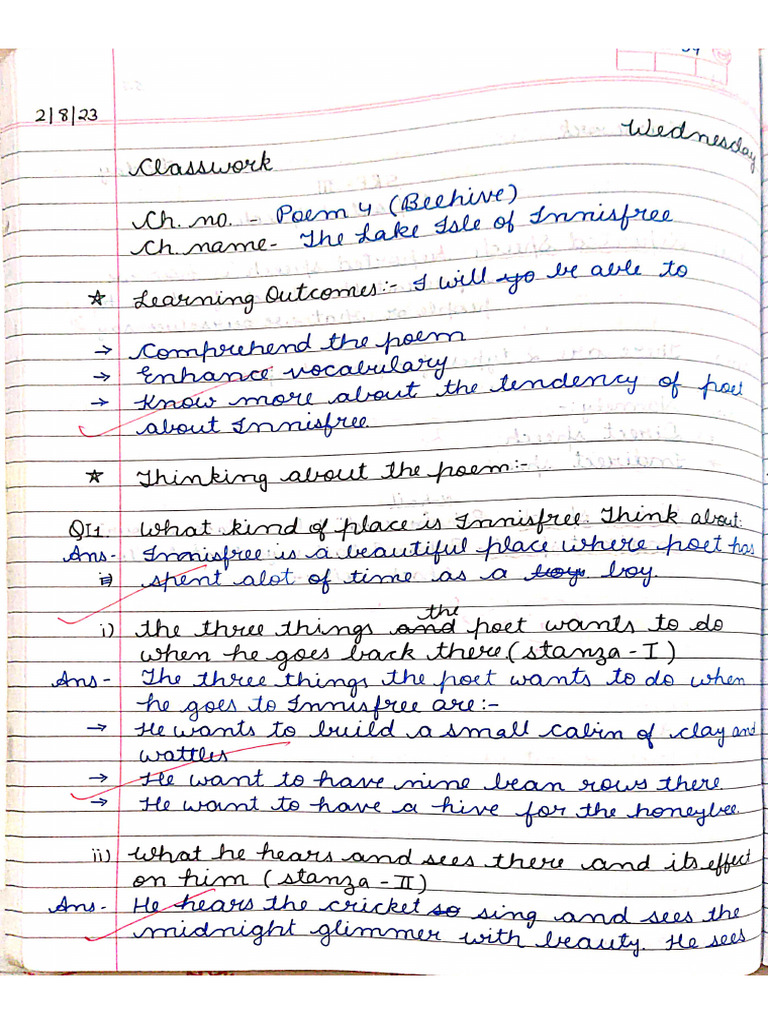 2/8/23
Wednesday
Classwork
Ch. no. - Poem 4 (Beehive)
Ch. name- The Lake Isle of Innisfree
☆ Learning Outcomes:- I will yo be able to
→ Comprehend the poem
→ Enhance vocabulary
→ Know more about the tendency of poet
about Innisfree
☆ Thinking about the poem:-
QI1. What kind of place is Innisfree. Think about:
Ans- Innisfree is a beautiful place where poet has
i) spent alot of time as a boy. boy.
i) the three things and the poet wants to do
when he goes back there (stanza - I)
Ans- The three things the poet wants to do when
he goes to Innisfree are:-
→ He wants to build a small cabin of clay and
wattles
→ He want to have nine bean rows there
→ He want to have a hive for the honeybee.
ii) What he hears and sees there and its effect
on him (stanza - II)
Ans- He hears the cricket so sing and sees the
midnight glimmer with beauty. He sees